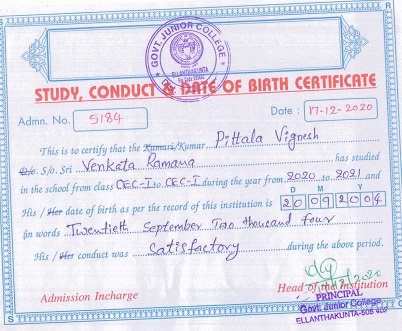 GOVT. JUNIOR COLLEGE
ELLANTHAKUNTA
STUDY, CONDUCT & DATE OF BIRTH CERTIFICATE
Admn. No. 5184 Date : 17-12-2020
This is to certify that the Kumari/Kumar Pittala Vignesh
D/o. S/o. Sri Venkata Ramana has studied
in the school from class CEC-I to CEC-I during the year from 2020 to 2021 and
D M Y
His / Her date of birth as per the record of this institution is 20 09 2004
(in words Twentieth September Two thousand four
His / Her conduct was Satisfactory during the above period.
Admission Incharge Head of the Institution
PRINCIPAL
Govt. Junior College
ELLANTHAKUNTA-505 402